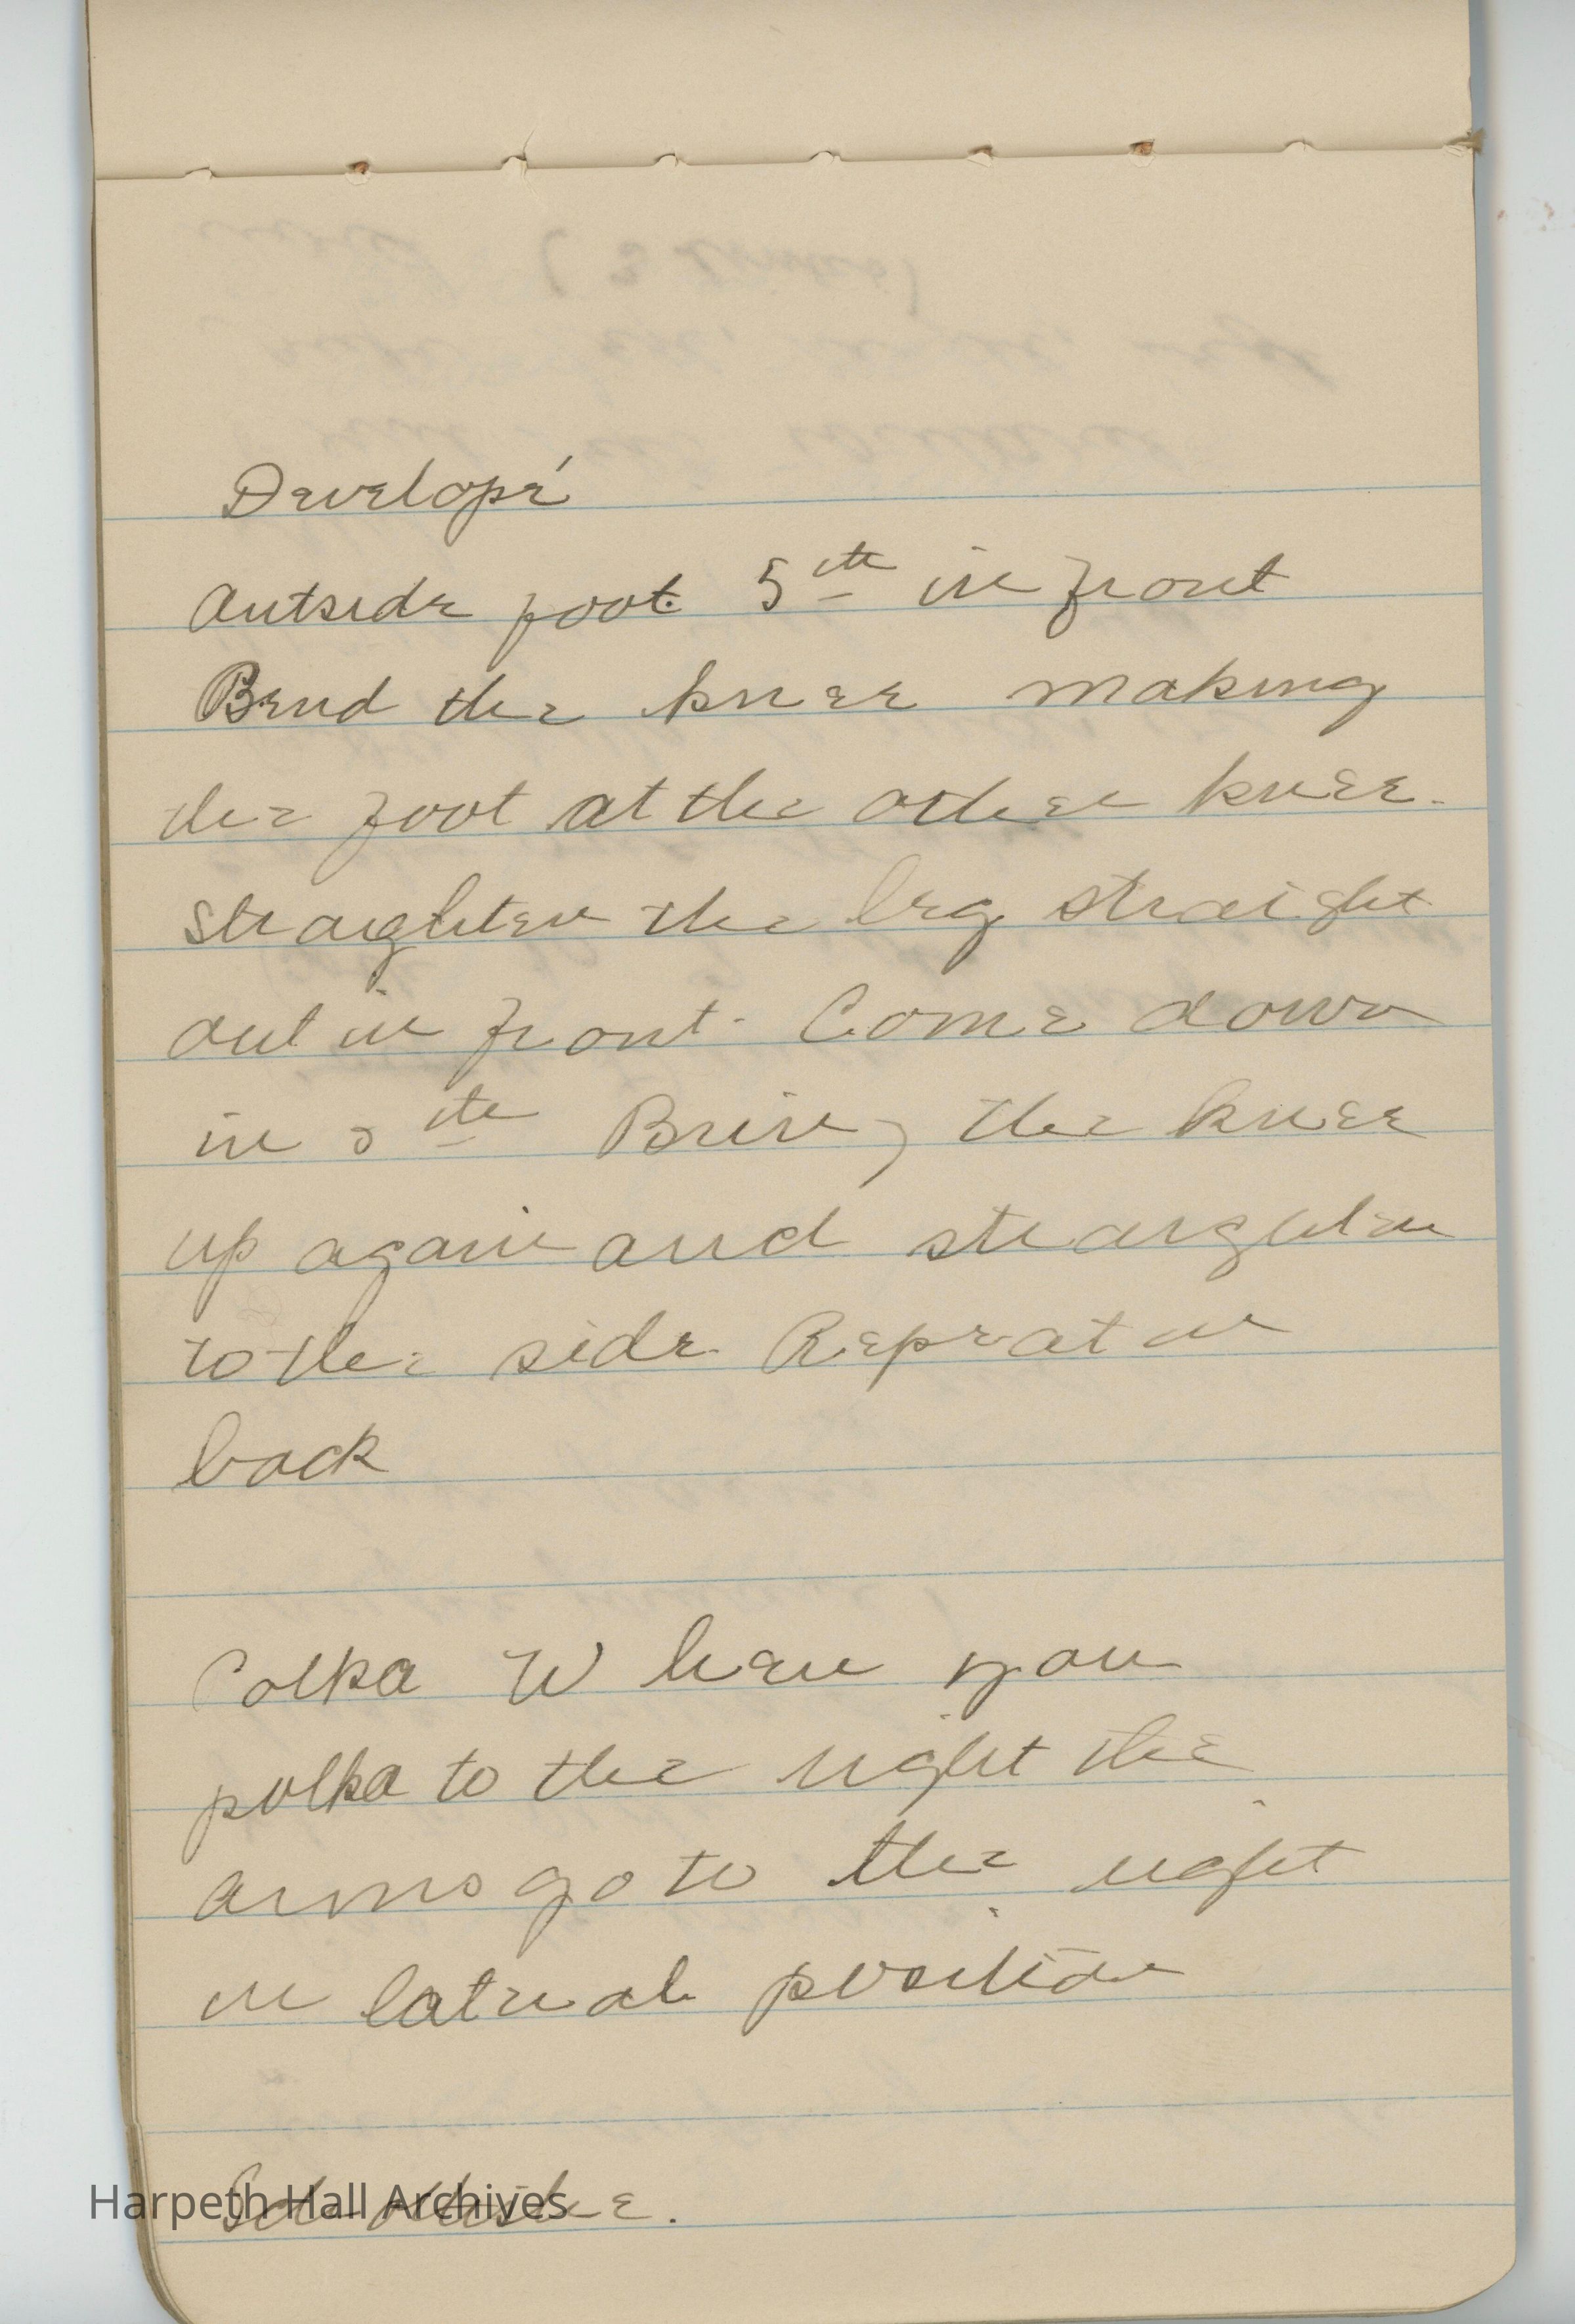 Developé
Outside foot 5th in front
Bend the knee making
the foot at the other knee.
straighten the leg straight
out in front. Come down
in 5th Bring the knee
up again and straighten
to the side. Repeat in
back
Polka When you
polka to the right the
arms go to the right
in latreal position
Harpeth Hall Archives